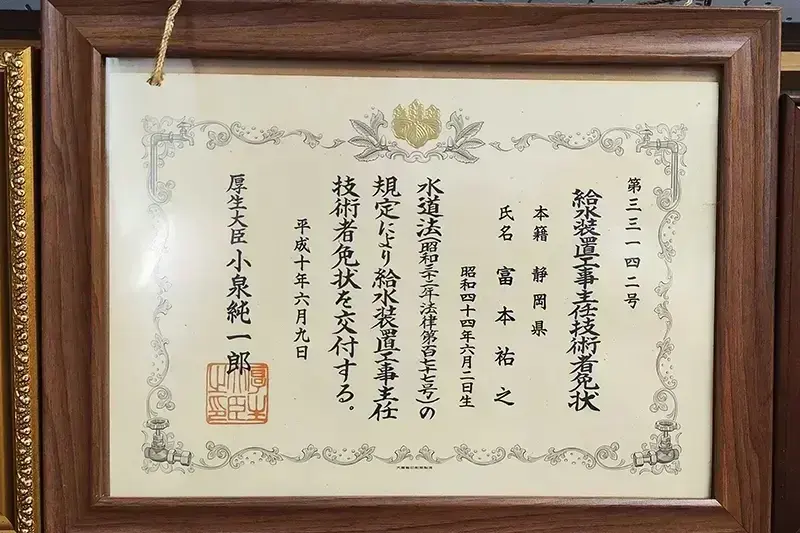 第三三一四二号
給水装置工事主任技術者免状
本籍 静岡県
氏名 富本祐之
昭和四十四年六月二日生
水道法(昭和三十二年法律第百七十七号)の
規定により給水装置工事主任
技術者免状を交付する。
平成十年六月九日
厚生大臣 小泉純一郎
厚生大臣之印